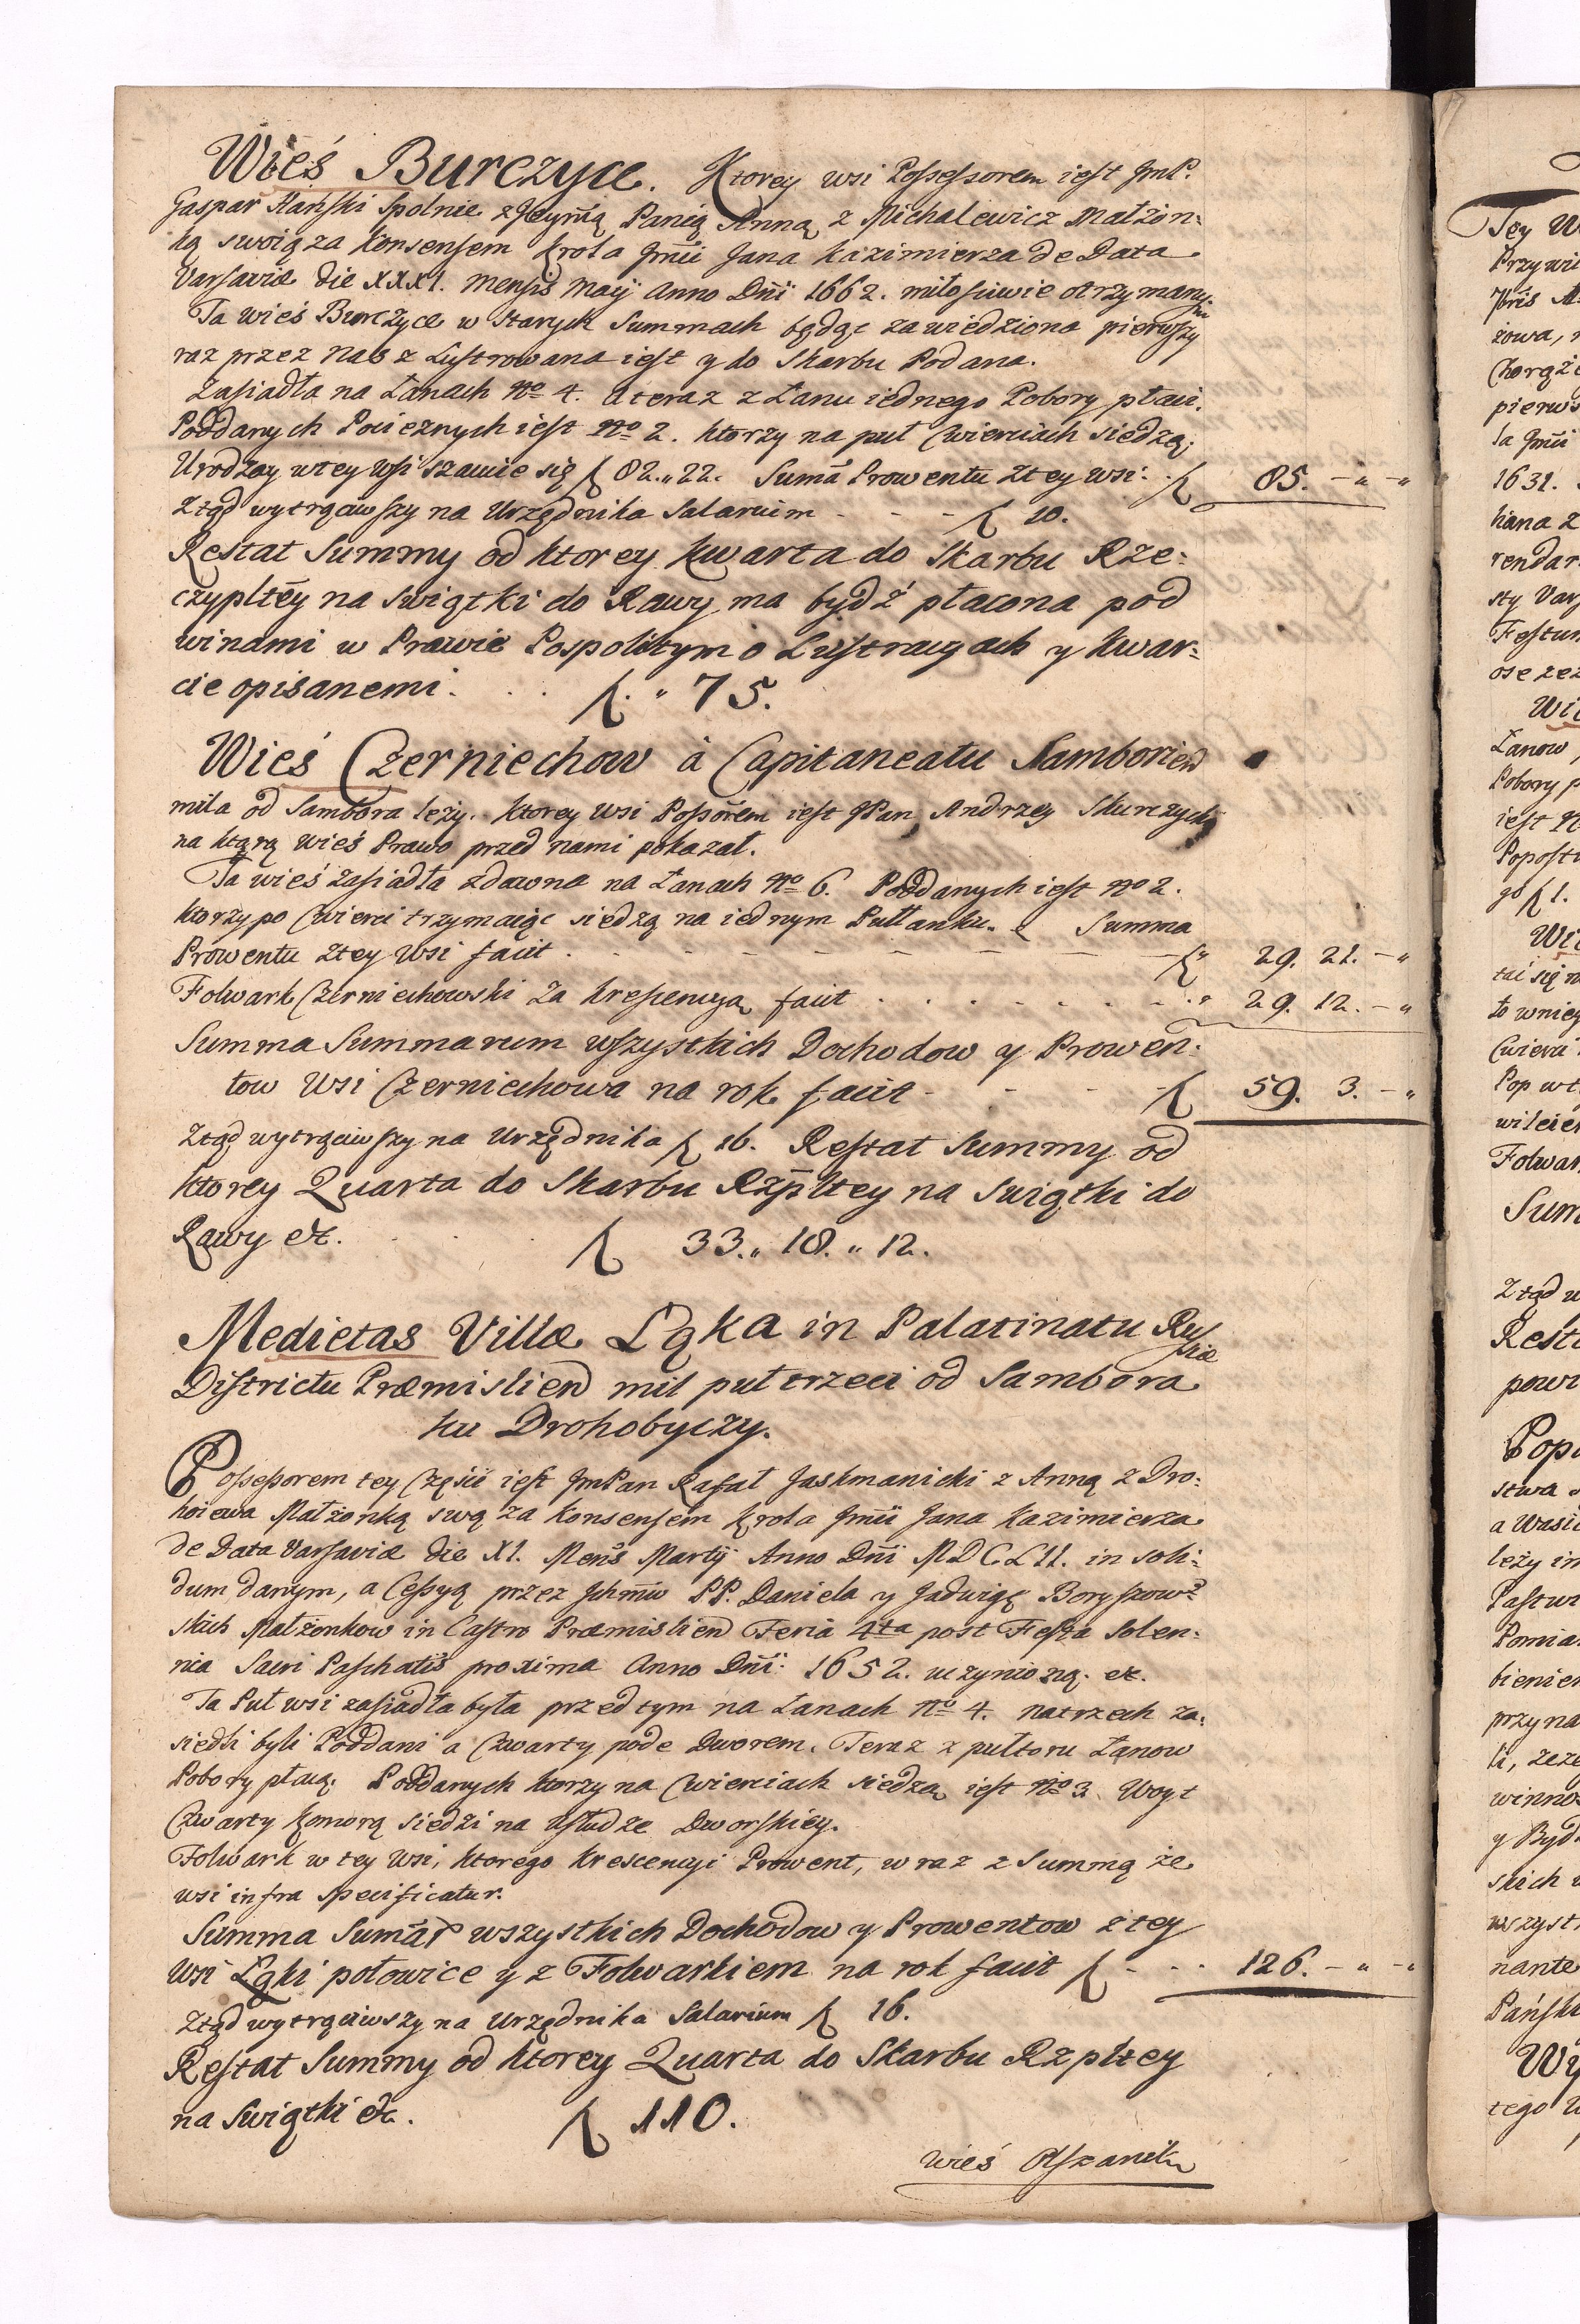 Wieś Burczyce. Ktorey wsi Possessorem iest JmP.
Gaspar Stański Spolnie z Jeymą Panią Anną z Michalewicz Małżon:
ką swoią za Konsensem Krola Jmći Jana Kazimierza de Data
Varsaviæ die XXXI. Mensis Maÿ Anno Dñi 1662. miłosciwie otrzymanym.
Ta wieś Burczyce w starych Summach będąc zawiedziona pierwszy
raz przez nas zLustrowana iest y do Skarbu Podana.
Zasiadła na Łanach No 4. a teraz z Łanu iednego Pobory płaci.
Poddanych Pocieżnych iest No 2. ktorzy na puł Cwierciach siedzą;
Urodzay w tey Wsi szacuie się f 82.,,22. Suma Prowentu z tey wsi: f 85. - „ - „
Ztąd wytrąciwszy na Urzędnika Salarium - - - f 10.
Restat Summy od ktorey kwarta do Skarbu Rze:
czyplтey na Swiątki do Rawy ma bydź płacona pod
winami w Prawie Pospolitym o Lustracyach y Kwar:
cie opisanemi. . . f. „ 75.
Wieś Czerniechow à Capitaneatu Samborień
mila od Sambora leży. Ktorey wsi Possorem iest JPan Andrzey
na ktorą wieś Prawo przed nami pokazał.
Ta wieś zasiadła zdawna na Łanach No 6. Poddanych iest No 2.
ktorzy po Cwierci trzymaiąc siedzą na iednym Pułłanku. Summa
Prowentu z tey Wsi facit . - - - - - f 29. 21. - „
Folwark Czerniechowski za krescencyą facit . . . . . 29. 12. - „
Summa Summarum wszystkich Dochodow y Prowen:
tow Wsi Czerniechowa na rok facit - - - - f 59. 3. - „
Ztąd wytrąciwszy na Urzędnika f 16. Restat Summy od
ktorey Quarta do Skarbu Rzpltey na Swiątki do
Rawy etc. . . f 33.„ 18.„ 12.
Medietas Villæ Łąka in Palatinatu Russiæ
Districtu Præmislień mil puł trzeci od Sambora
ku Drohobyczy.
Possessorem tey Częsci iest JmPan Rafał Jaskmanicki z Anną z Dro:
hoiewa Małżonką swą za Konsensem Krola Jmći Jana Kazimierza
de Data Varsaviæ die XI. Mens Martÿ Anno Dñi MDCLII. in soli:
dum danym, a Cessyą przez Jchmciow PP. Daniela y Jadwigę Boryszow:
skich Małżonkow in Castro Præmislień Feria 4ta post Festa Solen:
nia Sacri Paschatis proxima Anno Dñi: 1652. uczynioną. etc.
Ta Puł wsi zasiadła była przed tym na Łanach No 4. na trzech za:
siedli byli Poddani a Czwarty pode Dworem. Teraz z pułtoru Łanow
Pobory płacą. Poddanych ktorzy na Cwierciach siedzą iest No 3. Woyt
Czwarty komorą siedzi na usłudze Dworskiey.
Folwark w tey wsi, ktorego krescencyi Prowent, wraz z Summą ze
wsi infra specificatur.
Summa Sumar wszystkich Dochodow y Prowentow z tey
Wsi Łąki połowice y z Folwarkiem na rok facit f - - - 126. - „ - „
Ztąd wytrąciwszy na Urzędnika Salarium f 16.
Restat Summy od ktorey Quarta do Skarbu Rzpłtey
na Swiątki etc. f 110.
Wieś Olszanik